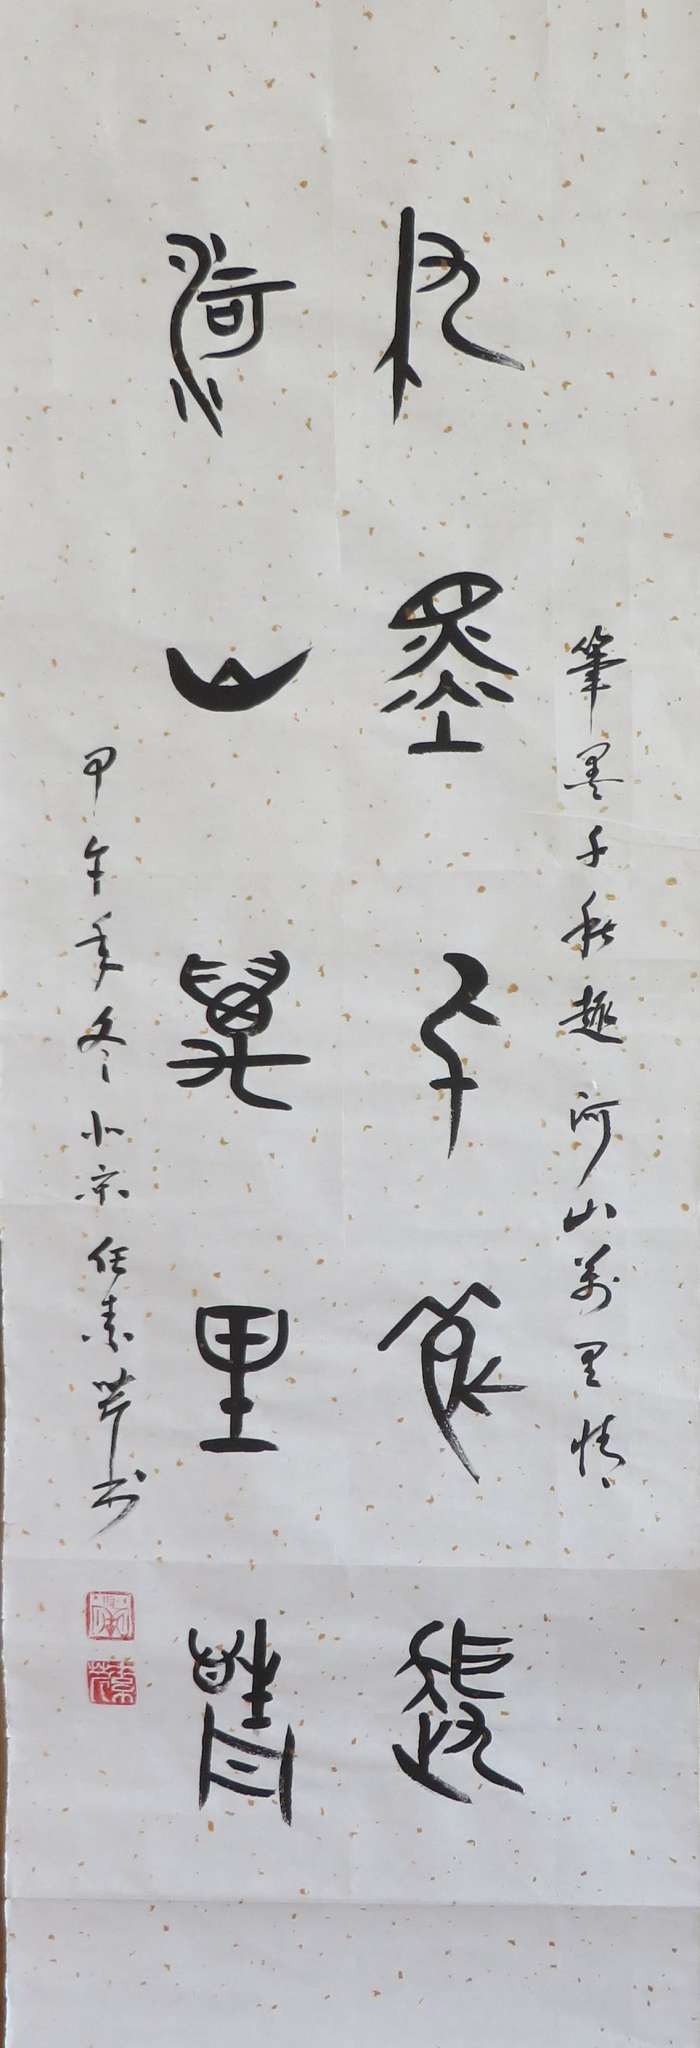 筆墨千秋趣河山萬里情
筆墨千秋趣
河山萬里情
甲午年冬北京任素芹书